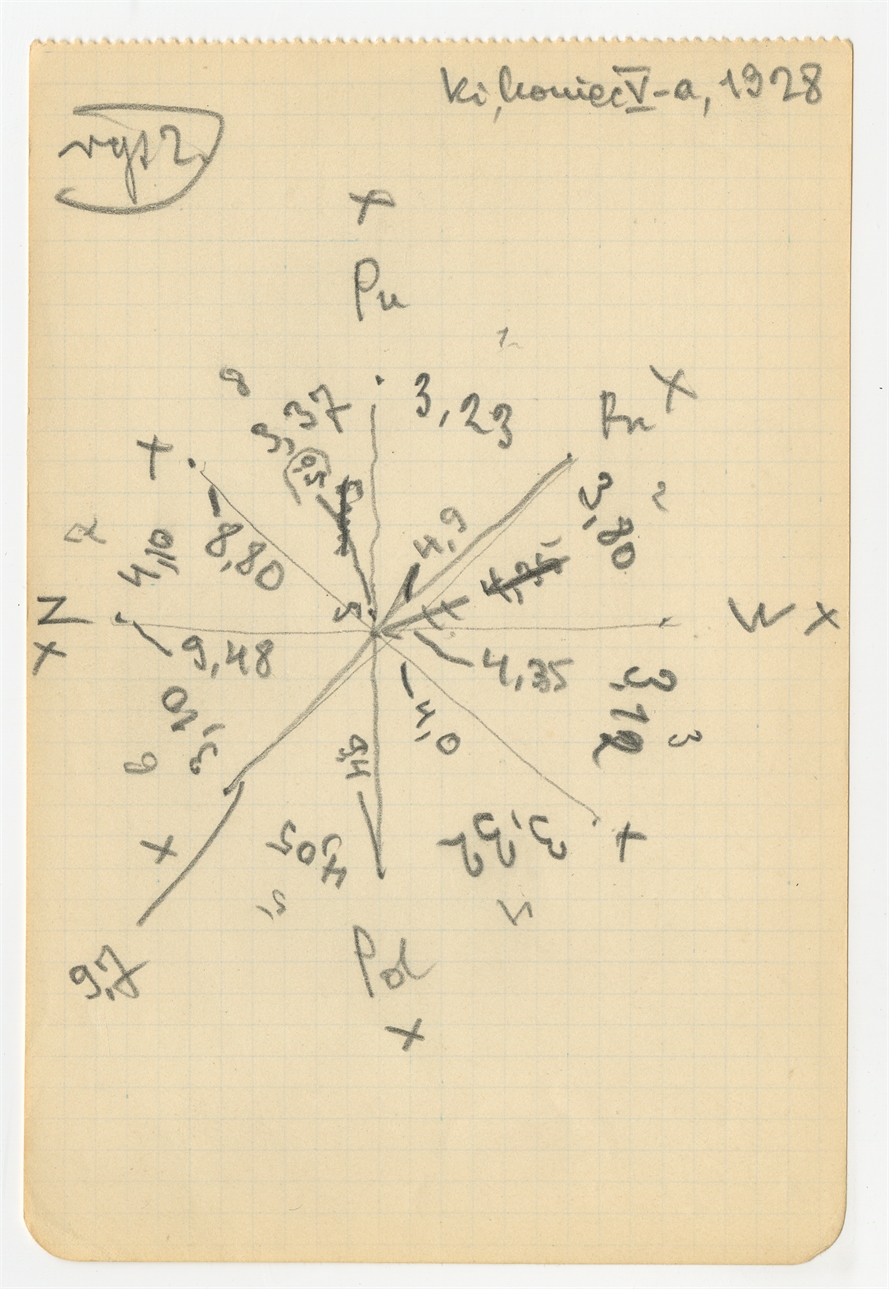 Ki, koniec V-a, 1928
rys 2
x
Pn
1
8
3,37
3,23
x
x
3,80
2
4,10
8,80
4,9
4,35
Z
x
W x
9,48
4,35
3,12
3
3,10
4,0
9,4
6
4,05
3,32
x
x
5
4
9,7
Pd
x